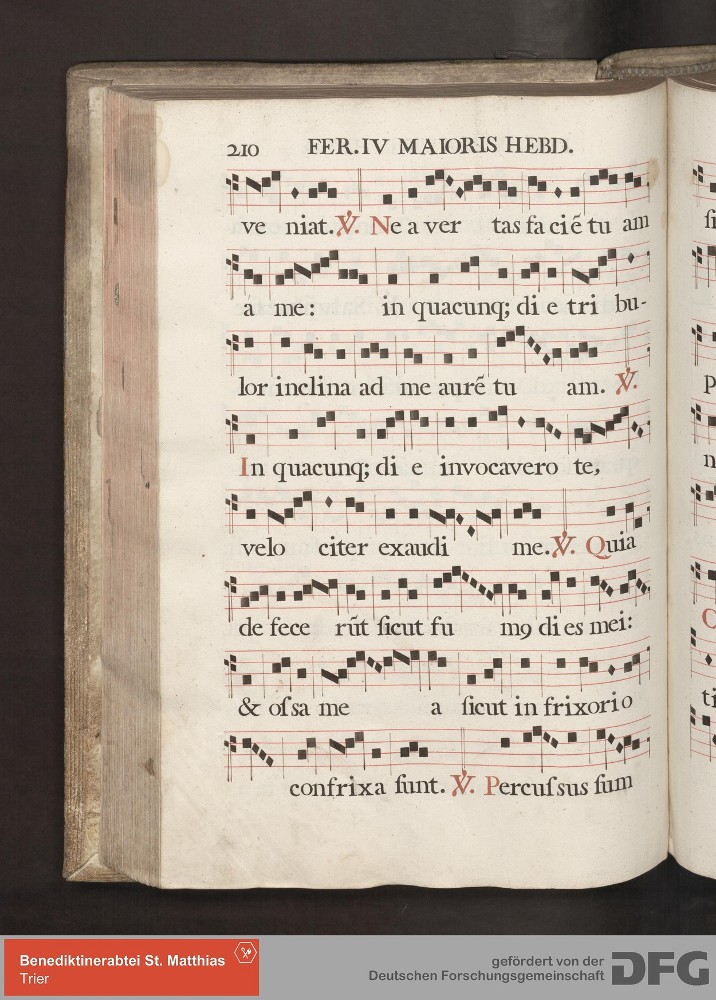 210 FER. IV MAIORIS HEBD.
ve niat. ℣. Ne a ver tas fa ciē tu am
a me: in quacunq; di e tri bu-
lor inclina ad me aurē tu am. ℣.
In quacunq; di e invocavero te,
velo citer exaudi me. ℣. Quia
de fece rūt ſicut fu mꝯ di es mei:
& oſsa me a ſicut in frixorio
confrixa ſunt. ℣. Percuſsus ſum
Benediktinerabtei St. Matthias
Trier
gefördert von der
Deutschen Forschungsgemeinschaft DFG